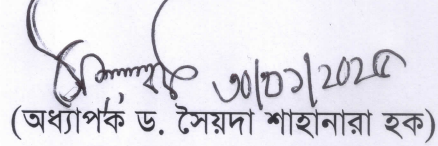 ৩০/০১/2025
(অধ্যাপক ড. সৈয়দা শাহানারা হক)